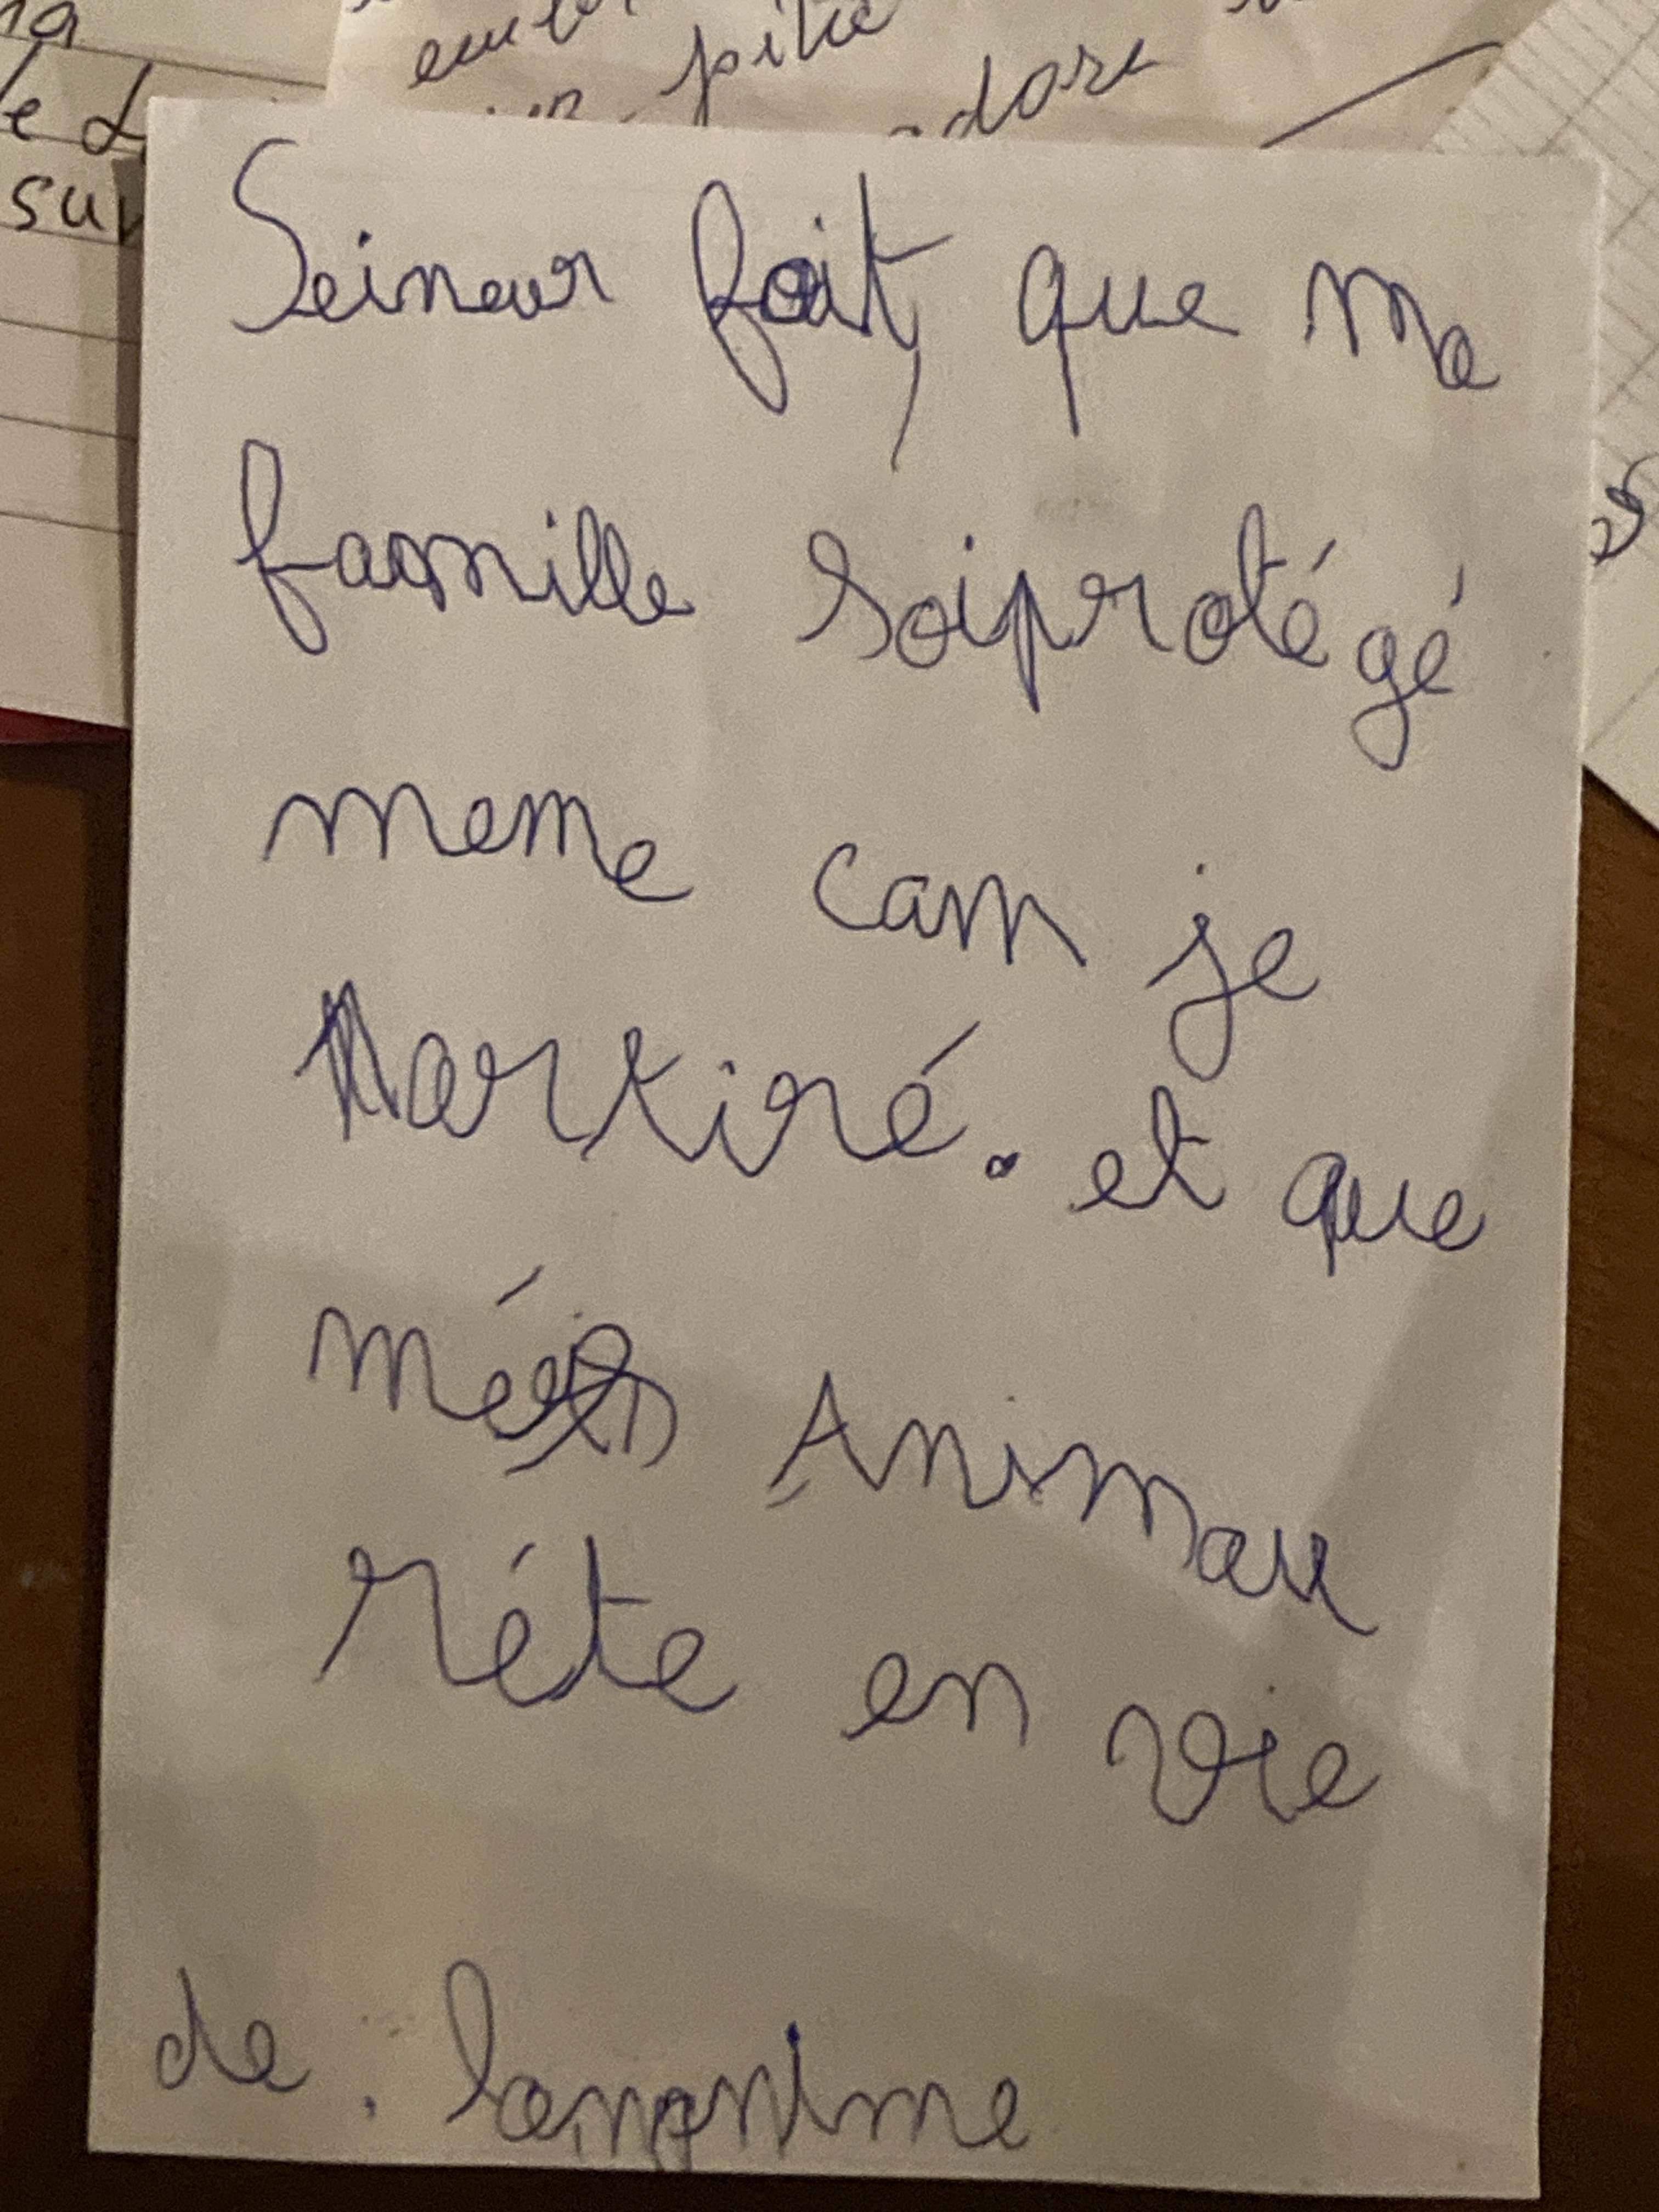 e
pitié
dore
sur
Seineur fait, que ma
famille soi protégé
meme cam je
Martiré. et que
més Animau
réte en vie
de. lanonime